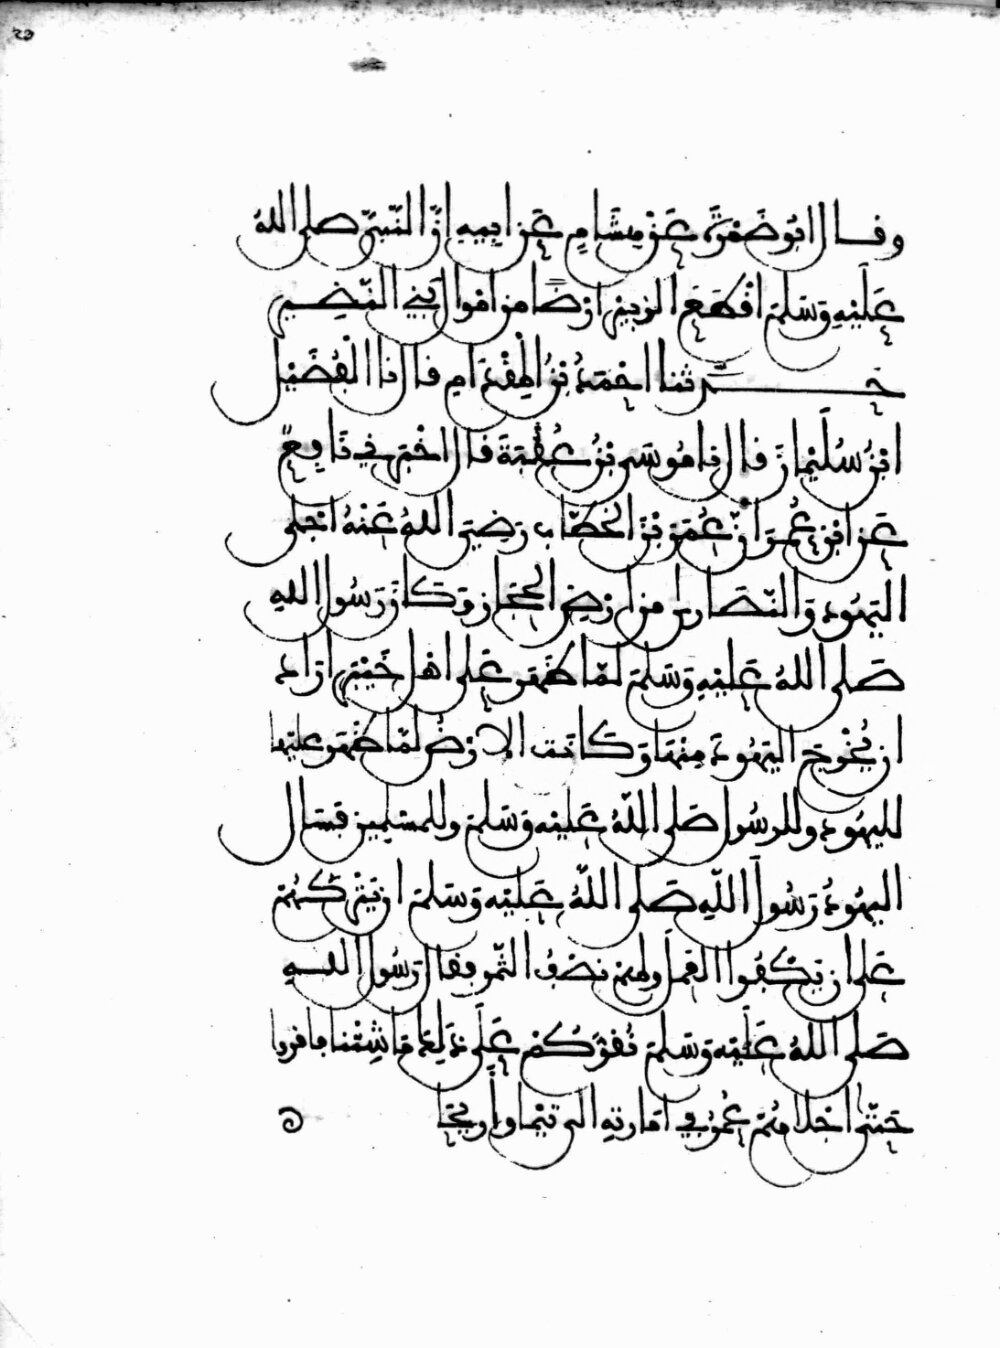 وقال ابو ضَمْرَةَ عَنْ هِشَامٍ عَن ابِيهِ انَّ النَّبِىَّ صلى اللهُ
عَلَيْهِ وَسَلمَ اقْطَعَ الزبيرَ ارْضًا من امْوالِ بَنِي النَّضِيرِ
حَدثنا احْمَدُ بْنُ الْمِقْدَامِ قال نا الْفُضَيْل
ابْنُ سُلَيْمانَ قال نا مُوسَى بْنُ عُقْبَةَ قال اخْبَرَنِي نَافِعٌ
عَن ابْنِ عُمَرَ انَّ عُمَرَ بْنَ الْخَطَّابِ رَضِيَ اللهُ عَنْهُ اجْلَى
الْيَهُودَ وَالنَّصَارى من ارْضِ الْحِجَازِ وَكَانَ رَسُولُ اللهِ
صَلى اللهُ عَلَيْهِ وَسَلمَ لَمَّا ظَهَرَ عَلى اهْلِ خَيْبَرَ ارَادَ
ان يُخْرِجَ الْيَهُودَ مِنْهَا وَكَانَت الارْضُ لَمَّا ظَهَرَ عليها
لليهُودِ وللرسُولِ صَلى اللّهُ عَلَيْهِ وَسَلمَ وللمسْلِمِينَ فسَال
اليهُودُ رَسُولَ اللّهِ صَلى اللّهُ عَلَيْهِ وَسَلمَ ان يَتْرُكَهُمْ
عَلى ان يَكْفُوا العَمَلَ ولهمْ نصْفُ الثَّمرِ فقال رَسُولُ اللهِ
صَلى اللهُ عَلَيْهِ وَسَلمَ نُقِرُّكُمْ عَلَى ذَلِكَ مَا شِئْنَا فاقروا
حَتَّى اجْلاهُمْ عُمَرُ فِي امَارَتِهِ الى تَيْمَا وأَرِيحَا